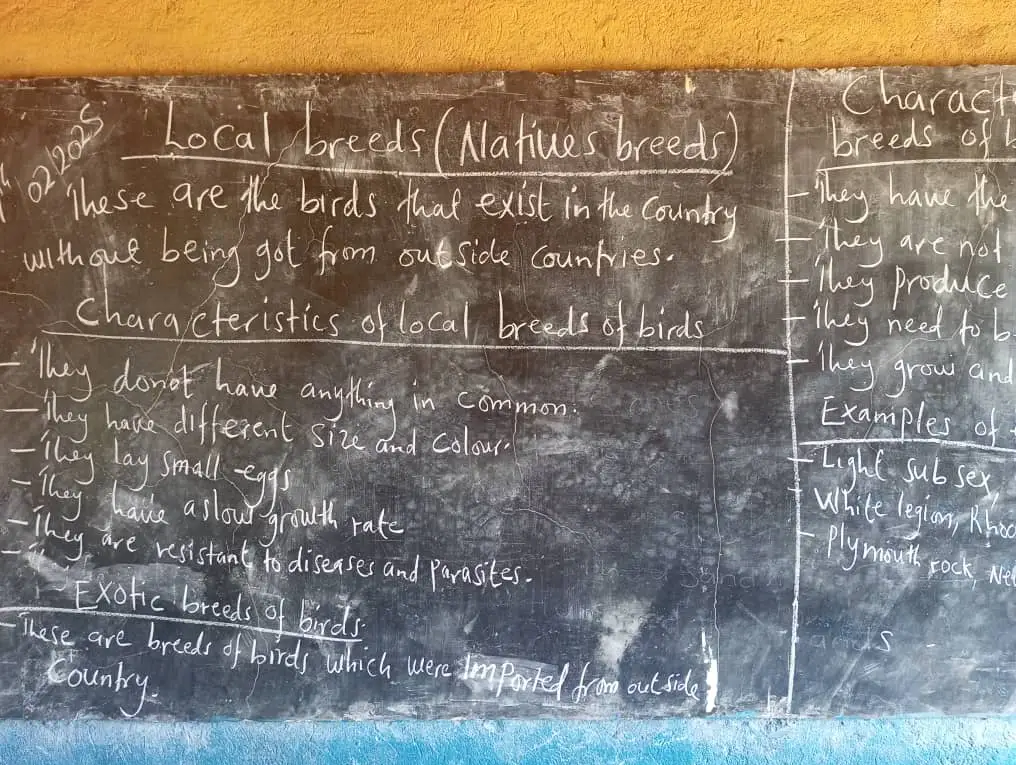 02/2025
Local breeds (Natives breeds)
These are the birds that exist in the country
without being got from outside countries.
Characteristics of local breeds of birds
- They donot have anything in common.
- They have different size and colour.
- They lay small eggs
- They have a slow growth rate
- They are resistant to diseases and parasites.
Exotic breeds of birds.
- These are breeds of birds which were imported from outside
Country.
Charact
breeds of b
- They have the
- They are not
- They produce
- They need to b
- They grow and
Examples of
- Light sub sex,
White legion, Rhod
- Plymouth rock, Ne